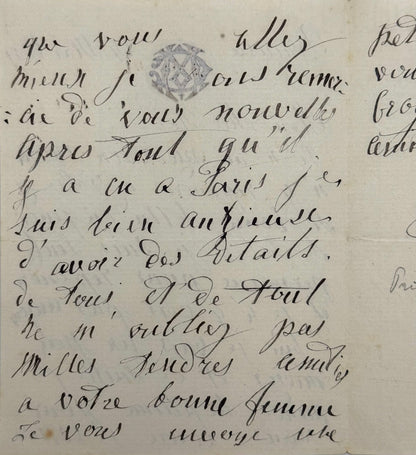 que vous allez
mieux je vous remer
: cie de vous nouvelles
après tout qu'il
y a eu a Paris je
suis bien anxieuse
d'avoir des détails.
de tous et de tout
ne m'oubliez pas
milles tendres amitiés
a votre bonne femme
Je vous envoye une
pet
vou